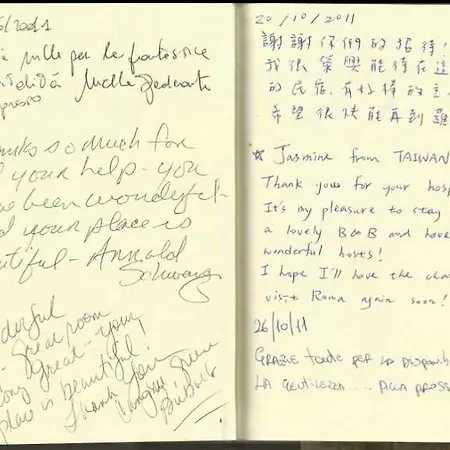 /2011
mille per la fantastica
Mille
presto
nks so much for
your help - you
been wonderful -
d your place is
utiful - Arnold
derful
- great room
great - your
place is beautiful.
Thank you
20/10/2011
謝謝你們的招待!
我很榮興能待在這
的民宿,有好棒的主
希望很快能再到羅
☆ Jasmine from TAIWAN
Thank your for your hosp
It's my pleasure to stay
a lovely B&B and have
wonderful hosts!
I hope I'll have the cha
visit Roma again soon!
26/10/11
GRAZIE PER LA DISPONIBI
LA GENTILEZZA .... ALLA PROSS